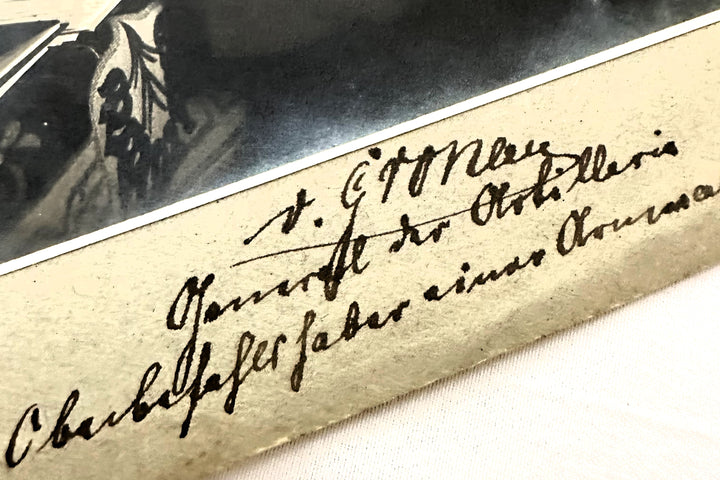 v. Gronau
General der Artillerie
Oberbefehlshaber einer